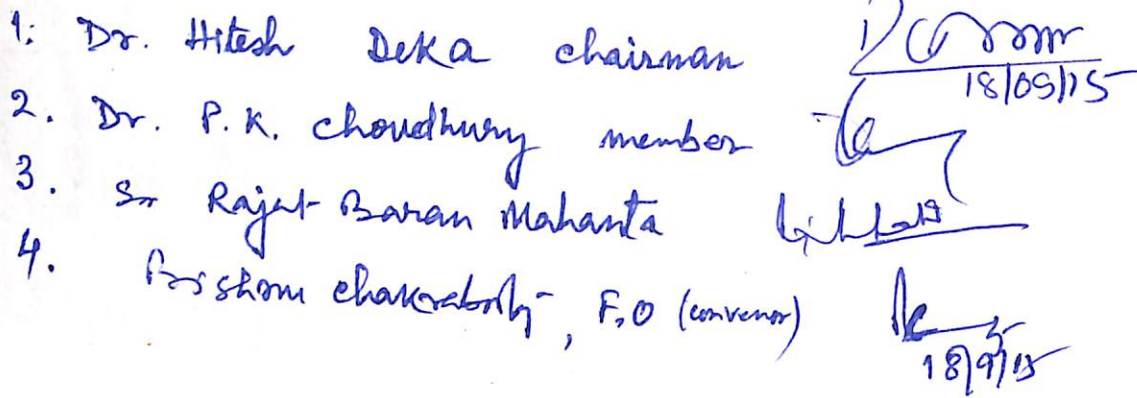 1. Dr. Hitesh Deka chairman
18/09/15
2. Dr. P.K. Choudhury member
3. Sr Rajat Baran Mahanta
4. Chakraborty, F.O (convenor)
18/9/15